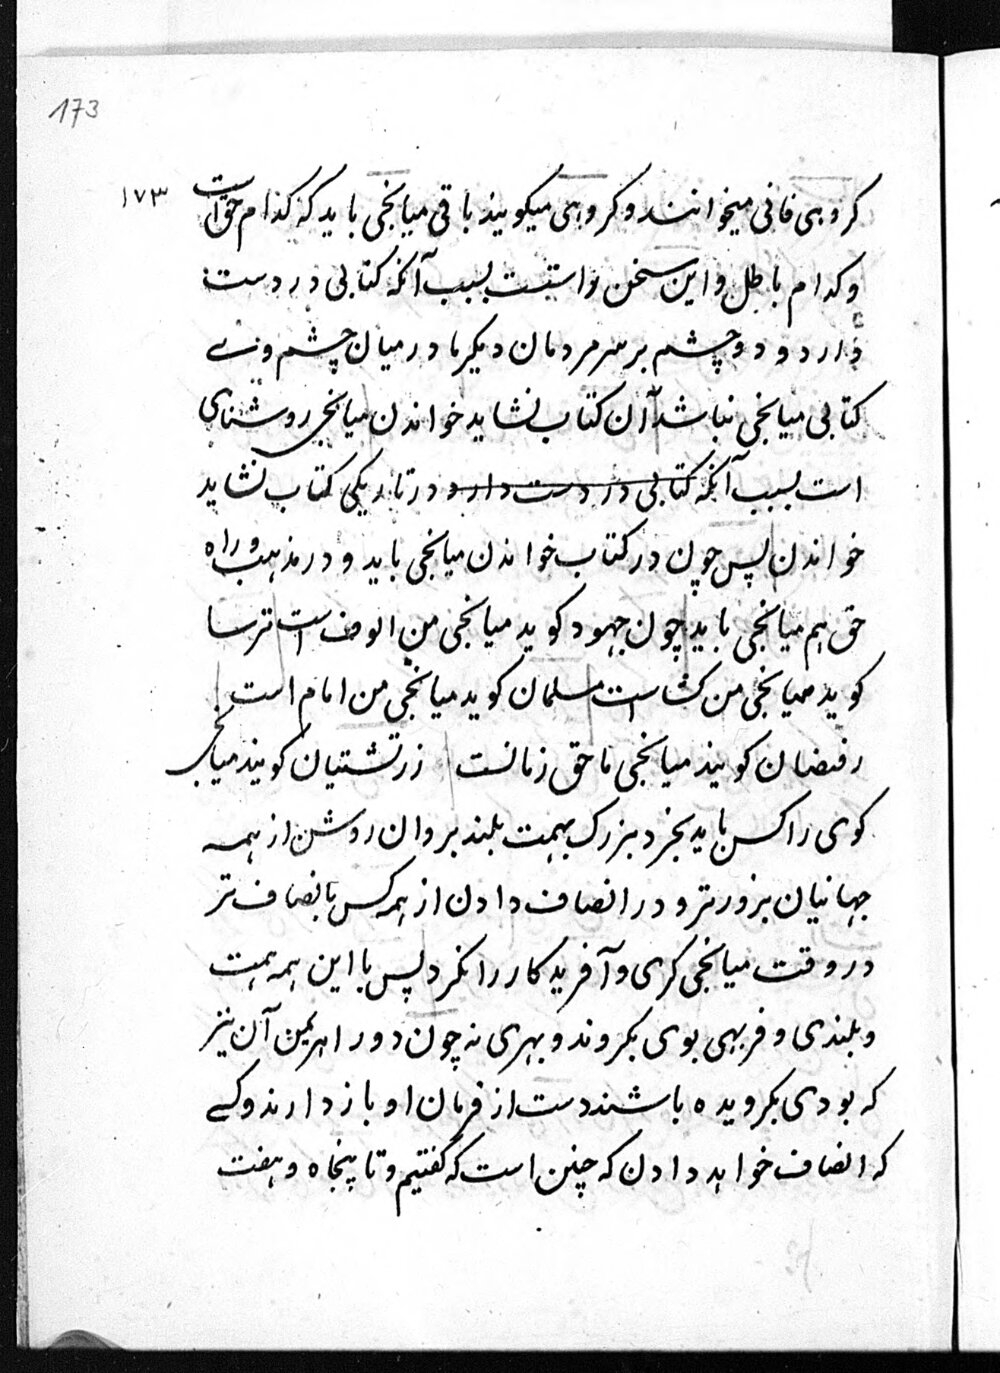 173
۱۷۳
کروهی فانی میخوانند و کروهی میکویند باقی میانجی باید که کدام حق است
و کدام باطل و این سخن بسبب آنکه کتابی در دست
دارد و دو چشم بر سر مردمان دیکر ما در میان چشم وی
کتابی میانجی نباشد آن کتاب نشاید خواندن میانجی روشنای
است بسبب آنکه کتابی در دست دارد و در تاریکی کتاب نشاید
خواندن پس چون در کتاب خواندن میانجی باید و در مذهب و راه
حق هم میانجی باید چون جهود کوید میانجی من است ترسا
کوید میانجی من است مسلمان کوید میانجی من امام است
رفضیان کویند میانجی ما حق زمانست زرتشتیان کویند میانجی
کوی را کس باید بخرد بزرک بهمت بلند بروان روشن از همه
جهانیان بزورتر و در انصاف دادن از همه کس بانصاف تر
در وقت میانجی کری و آفریدکار را نکرد پس با این همه همت
و بلندی و فربهی بوی بکروند و بهری نه چون دور اهریمن آن نیز
که بودی بکرویده باشند دست از فرمان او باز دارند و کسی
که انصاف خواهد دادن که چنین است که کفتیم و تا پنجاه و هفت